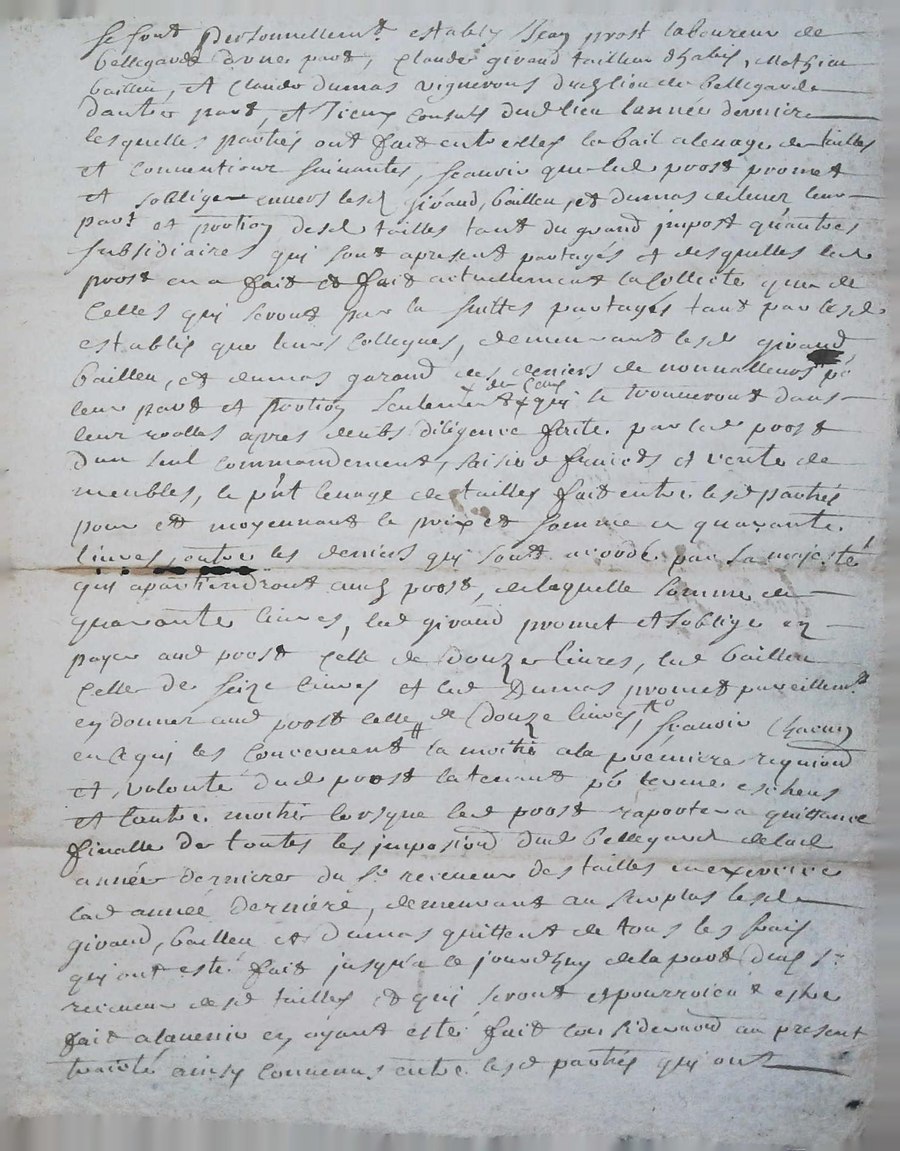 Se sont personnellemt establis Jean prost laboureur de
bellegarde d'une part, Claude giraud tailleur d'habis, Mathieu
bailleu, et Claude dumas vignerons dud lieu de bellegarde
d'autre part, et Jceux consuls dud lieu l'année dernière
lesquelles parties ont fait entre elles le bail alevage de tailles
et conventions suivantes, scauoir que led prost promet
et soblige enuers lesd giraud, bailleu, et dumas de leuer leur
part et portion desd tailles tant du grand jmpost qu'autres
subsidiaires qui sont apresent partagés et desquelles led
prost en a fait et fait actuellement la Collecte que de
Celles qui seront par la suittes partagés tant par lesd
establis que leurs Collegues, demeurant lesd giraud
bailleu, et dumas garand des deniers de nonualleurs pr
leur part et portion seulement de Ceux qui se trouueront dans
leur rolles apres deubs diligence faite par led prost
d'un seul commandement, saisie de fruicts et vente de
meubles, le pnt leuage de tailles fait entre lesd parties
pour et moyennant le prix et somme de quarante
liures, outre les deniers qui sont acordé par sa majesté
qui apartiendront aud prost, de laquelle somme de
quarante liures, led giraud promet et soblige en
payer aud prost Celle de Douze liures, led bailleu
Celle de seize liures et led Dumas promet pareillemt
en donner aud prost Celle de Douze liures, scauoir Chacun
en Ce qui les Concernent la moitié ala première requisiond
et volonté dud prost la tenant pr terme escheus
et l'autre moitié lorsque led prost raportera quittance
finalle de toutes les jmposiond dud bellegarde delad
année dernière du Sr receueur des tailles en exercice
lad année dernière, demeurant au surplus lesd
giraud, bailleu et Dumas quittent de tous les frais
qui ont esté fait jusqu'a ce jourdhuy de la part dud Sr
receueur desd tailles et qui seront et pourroient estre
fait alauenir en ayant esté fait consideraond au present
traicté ainsy Conuenus entre lesd parties qui ont